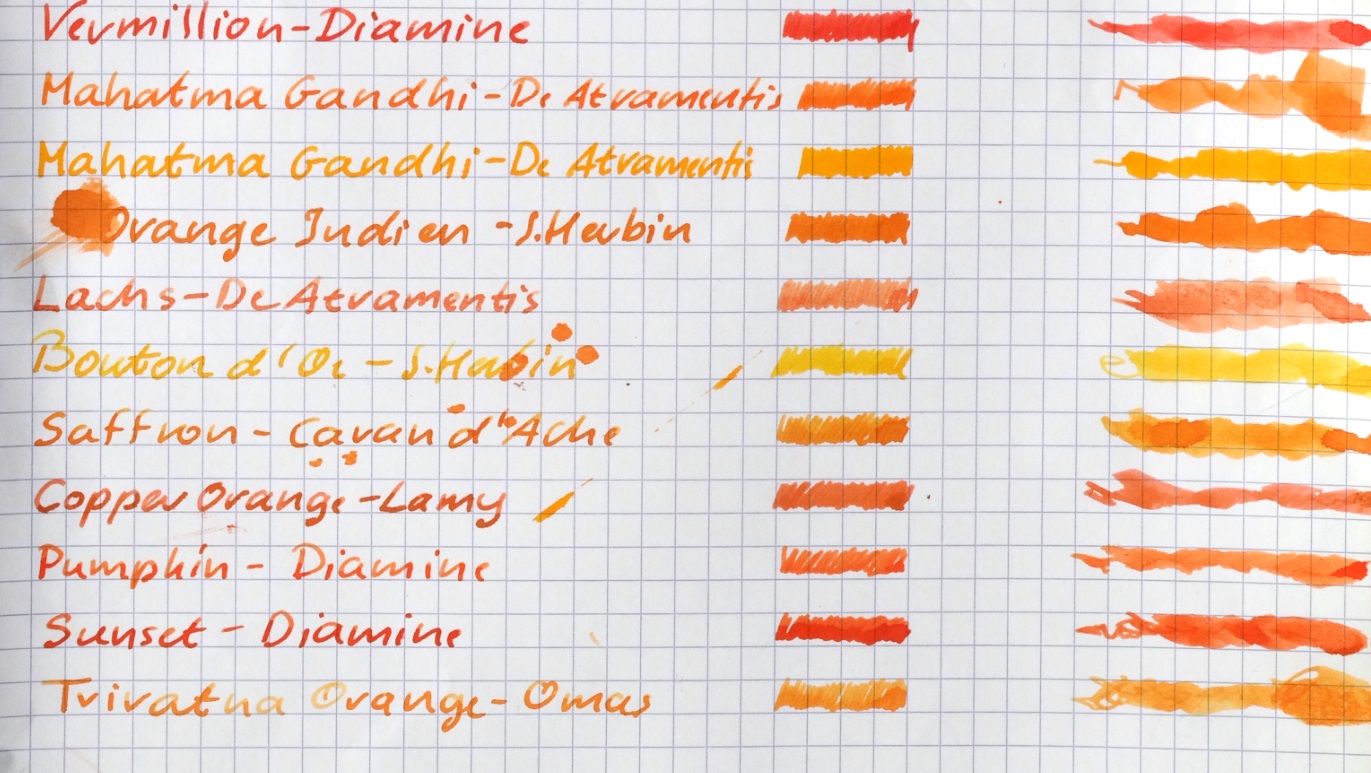 Vermillion-Diamine
Mahatma Gandhi-De Atramentis
Mahatma Gandhi-De Atramentis
Orange Indien-J.Herbin
Lachs-De Atramentis
Bouton d'Or-J.Herbin
Saffron-Caran d'Ache
Copper Orange-Lamy
Pumpkin-Diamine
Sunset-Diamine
Trivatna Orange-Omas